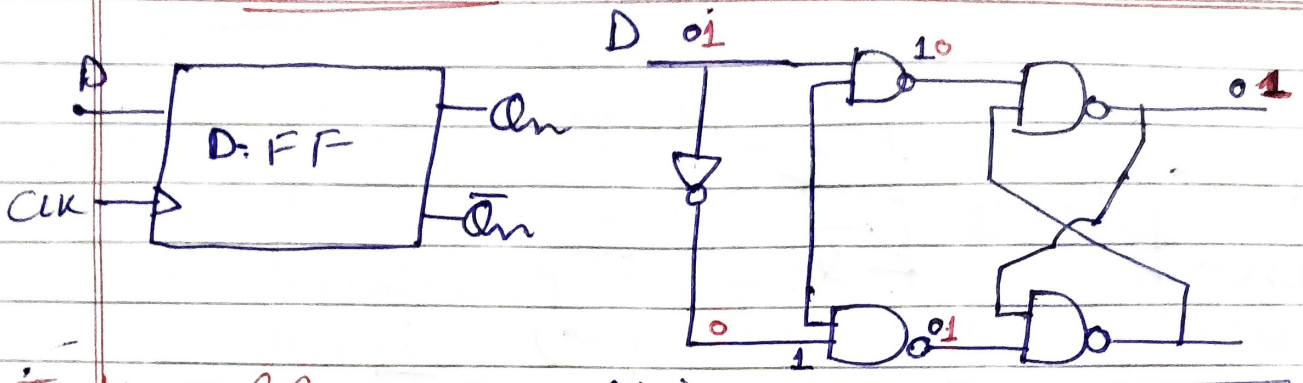 D
D: FF
Qn
CLK
Q̅n
D 01
10
01
0
1
01